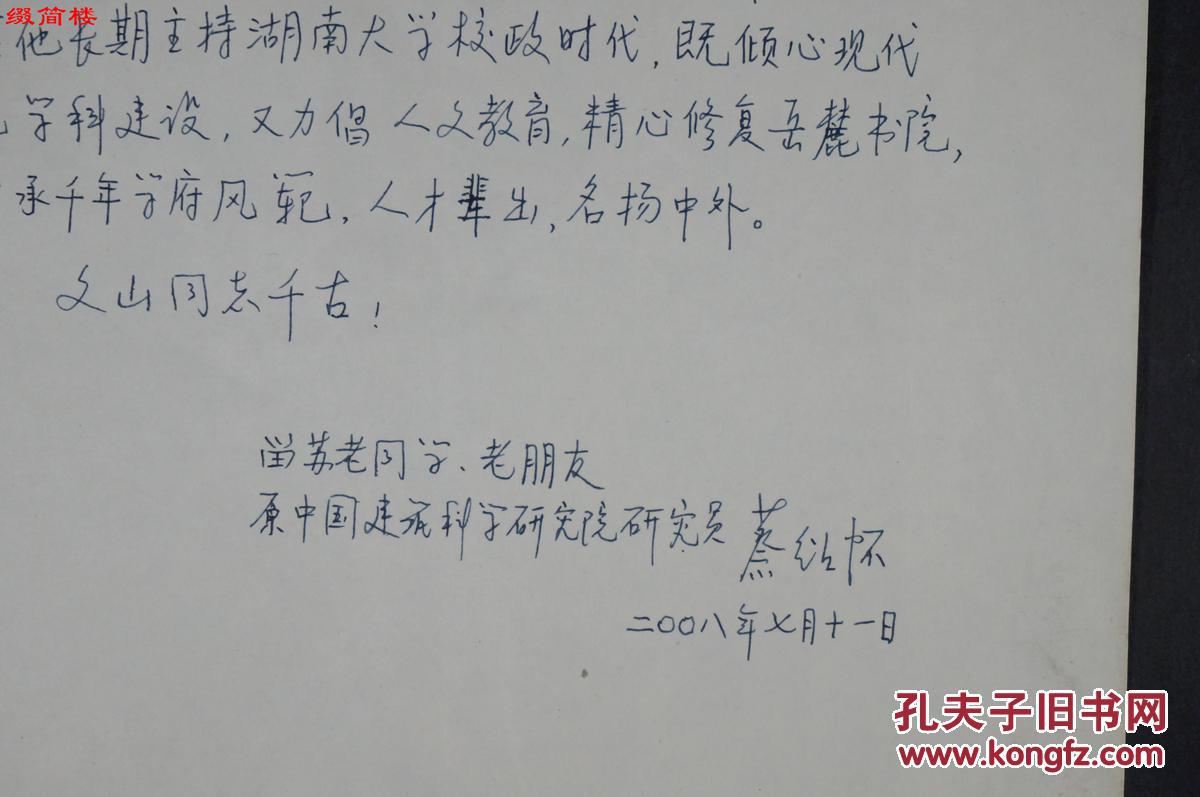 缀简楼
他长期主持湖南大学校政时代，既倾心现代
学科建设，又力倡人文教育，精心修复岳麓书院，
承千年学府风范，人才辈出，名扬中外。
文山同志千古！
留苏老同学、老朋友
原中国建筑科学研究院研究员 蔡绍怀
二〇〇八年七月十一日
孔夫子旧书网
www.kongfz.com